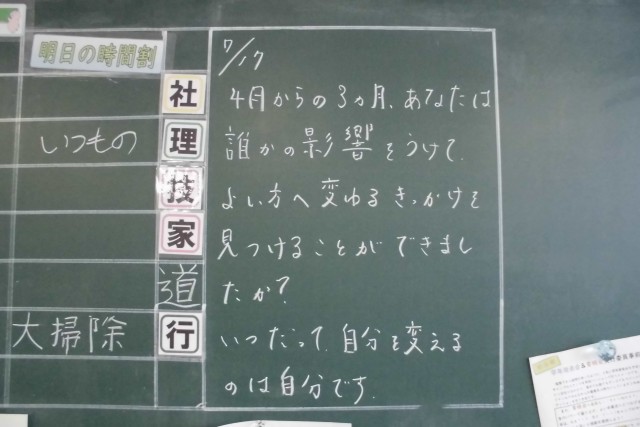 明日の時間割
社
いつもの
理
技
家
道
大掃除
行
7/17
4月からの3ヵ月、あなたは
誰かの影響をうけて、
よい方へ変ゆるきっかけを
見つけることができまし
たか?
いつだって、自分を変える
のは自分です。